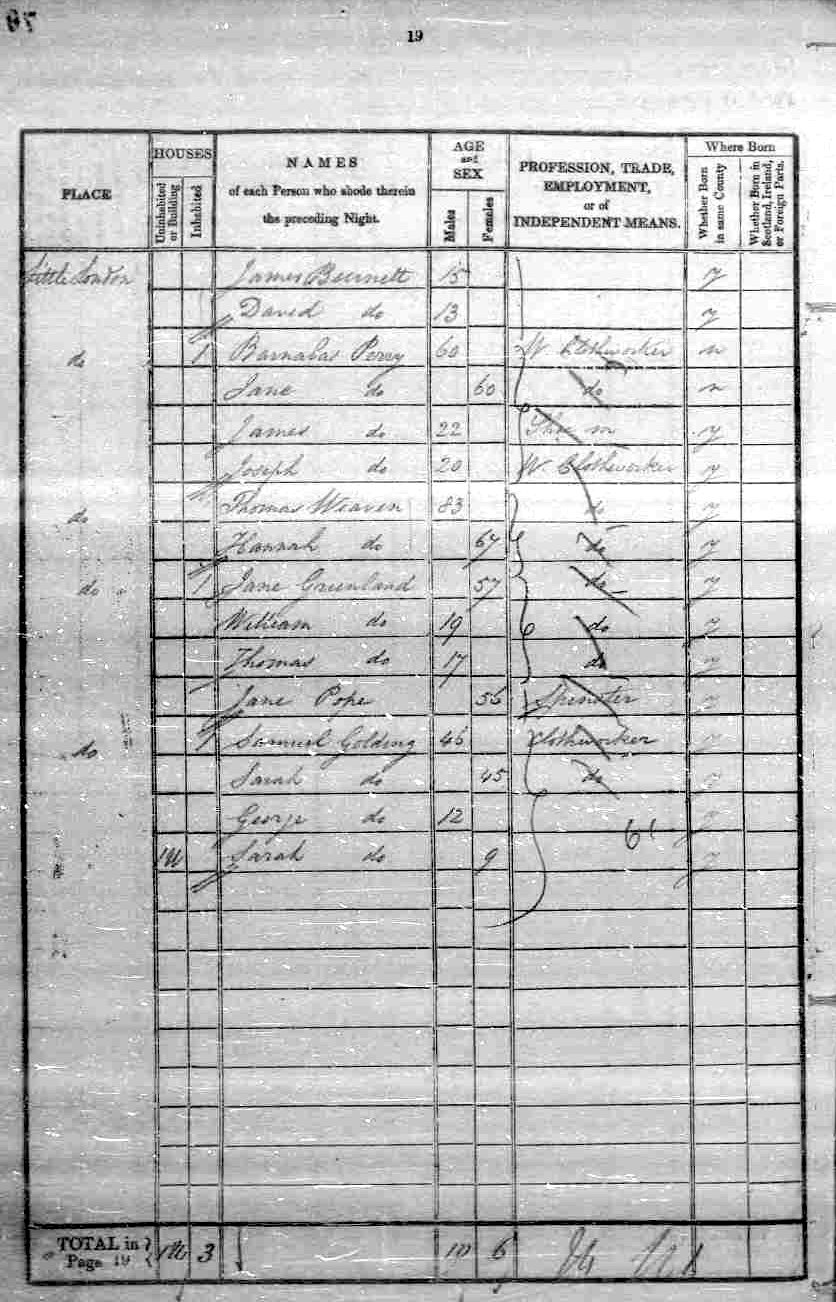 19
PLACE
HOUSES
Uninhabited or Building
Inhabited
NAMES
of each Person who abode therein
the preceding Night.
AGE
and
SEX
Males
Females
PROFESSION, TRADE,
EMPLOYMENT,
or of
INDEPENDENT MEANS.
Where Born
Whether Born in same County
Whether Born in Scotland, Ireland, or Foreign Parts.
Little London James Burnett 15 y
David do 13 y
do 1 Barnabas Perry 60 W. Clothworker n
Jane do 60 do n
James do 22 m y
Joseph do 20 W. Clothworker y
do Thomas Weaven 83 do y
Hannah do 67 do y
do 1 Jane Greenland 57 do y
William do 19 do y
Thomas do 17 do y
Jane Pope 56 Spinster y
do 1 Samuel Golding 46 Clothworker y
Sarah do 45 do y
George do 12 y
1U Sarah do 9 y
TOTAL in
Page 19
1U 3 10 6